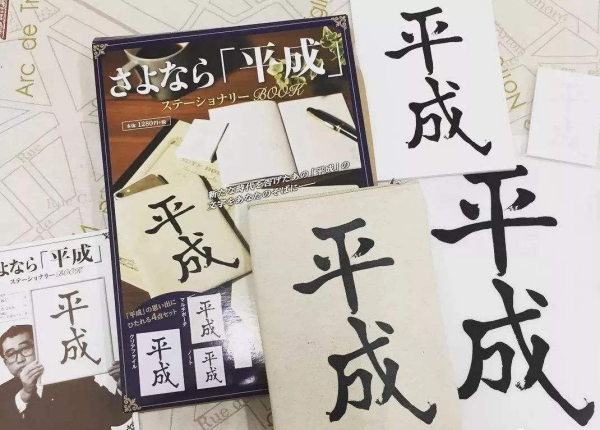 さよなら「平成」
ステーショナリーBOOK
本体 1280円+税
新たな時代を告げたあの「平成」の
文字をあなたのそばに――
平成
「平成」の思い出に
ひたれる4点セット
マルチポーチ
クリアファイル
ノート
平成
平成
平成
平成
平成
平成
よなら「平成」
ステーショナリーBOOK
平成
Arc de Tr
Rue